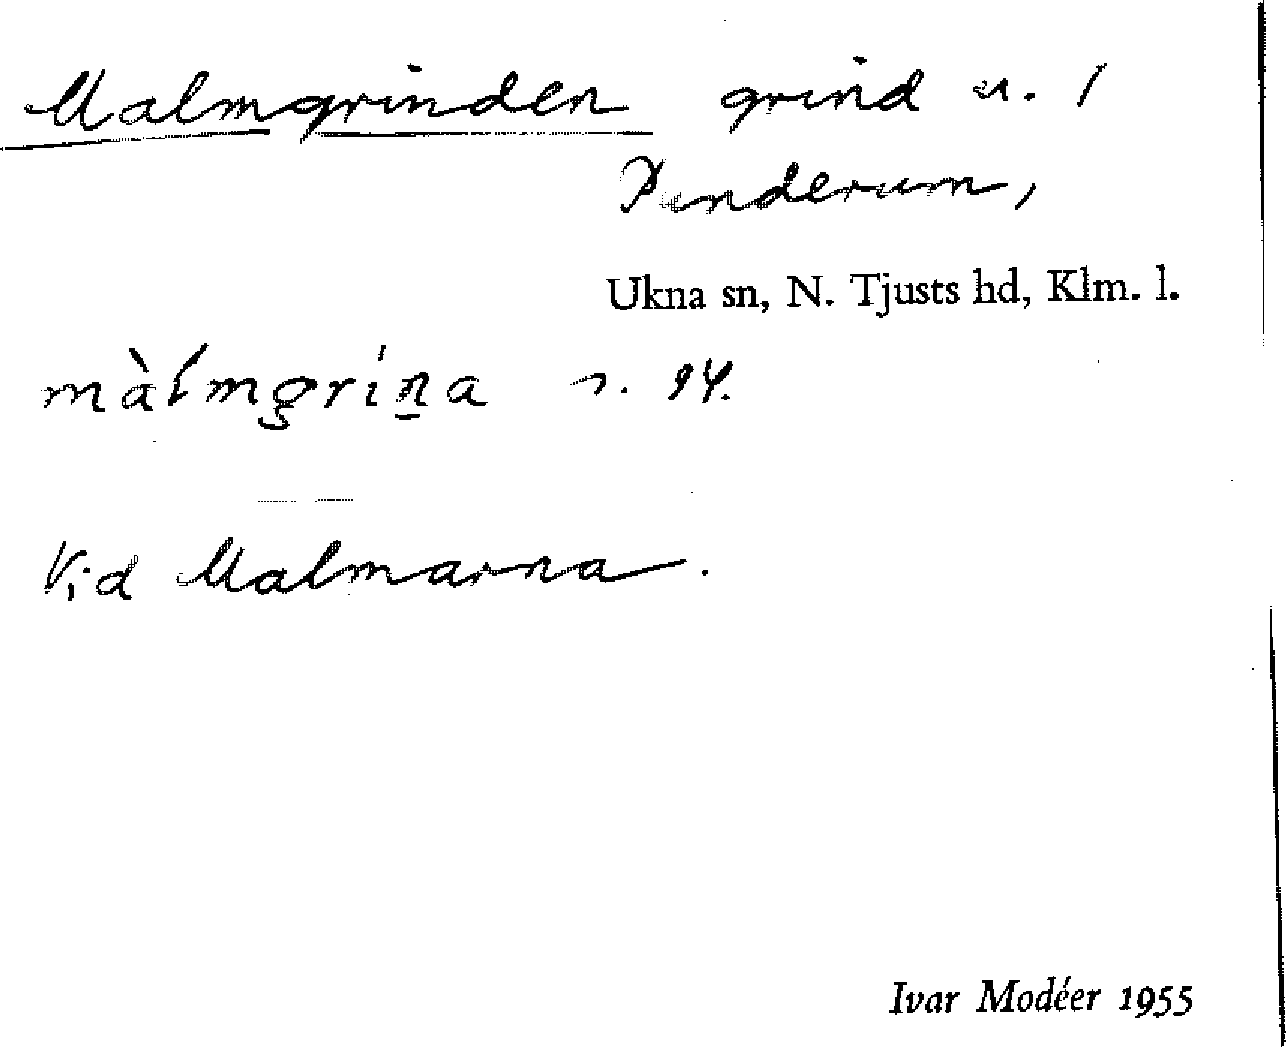 Malmgrinden grind n. 1
Punderum,
Ukna sn, N. Tjusts hd, Klm. l.
màlmgrin̲a s. 94.
Vid Malmarna.
Ivar Modéer 1955